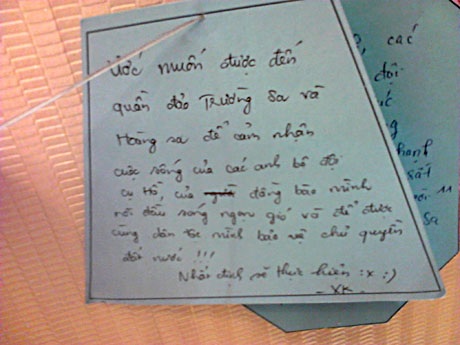 Ước muốn được đến
quần đảo Trường Sa và
Hoàng sa để cảm nhận
cuộc sống của các anh bộ đội
cụ Hồ của đồng bào mình
nơi đầu sóng ngọn gió và để được
cùng dân tộc mình bảo vệ chủ quyền
đất nước !!!
Nhất định sẽ thực hiện :x :)
- XK -
các
đội
sất
11
Sa